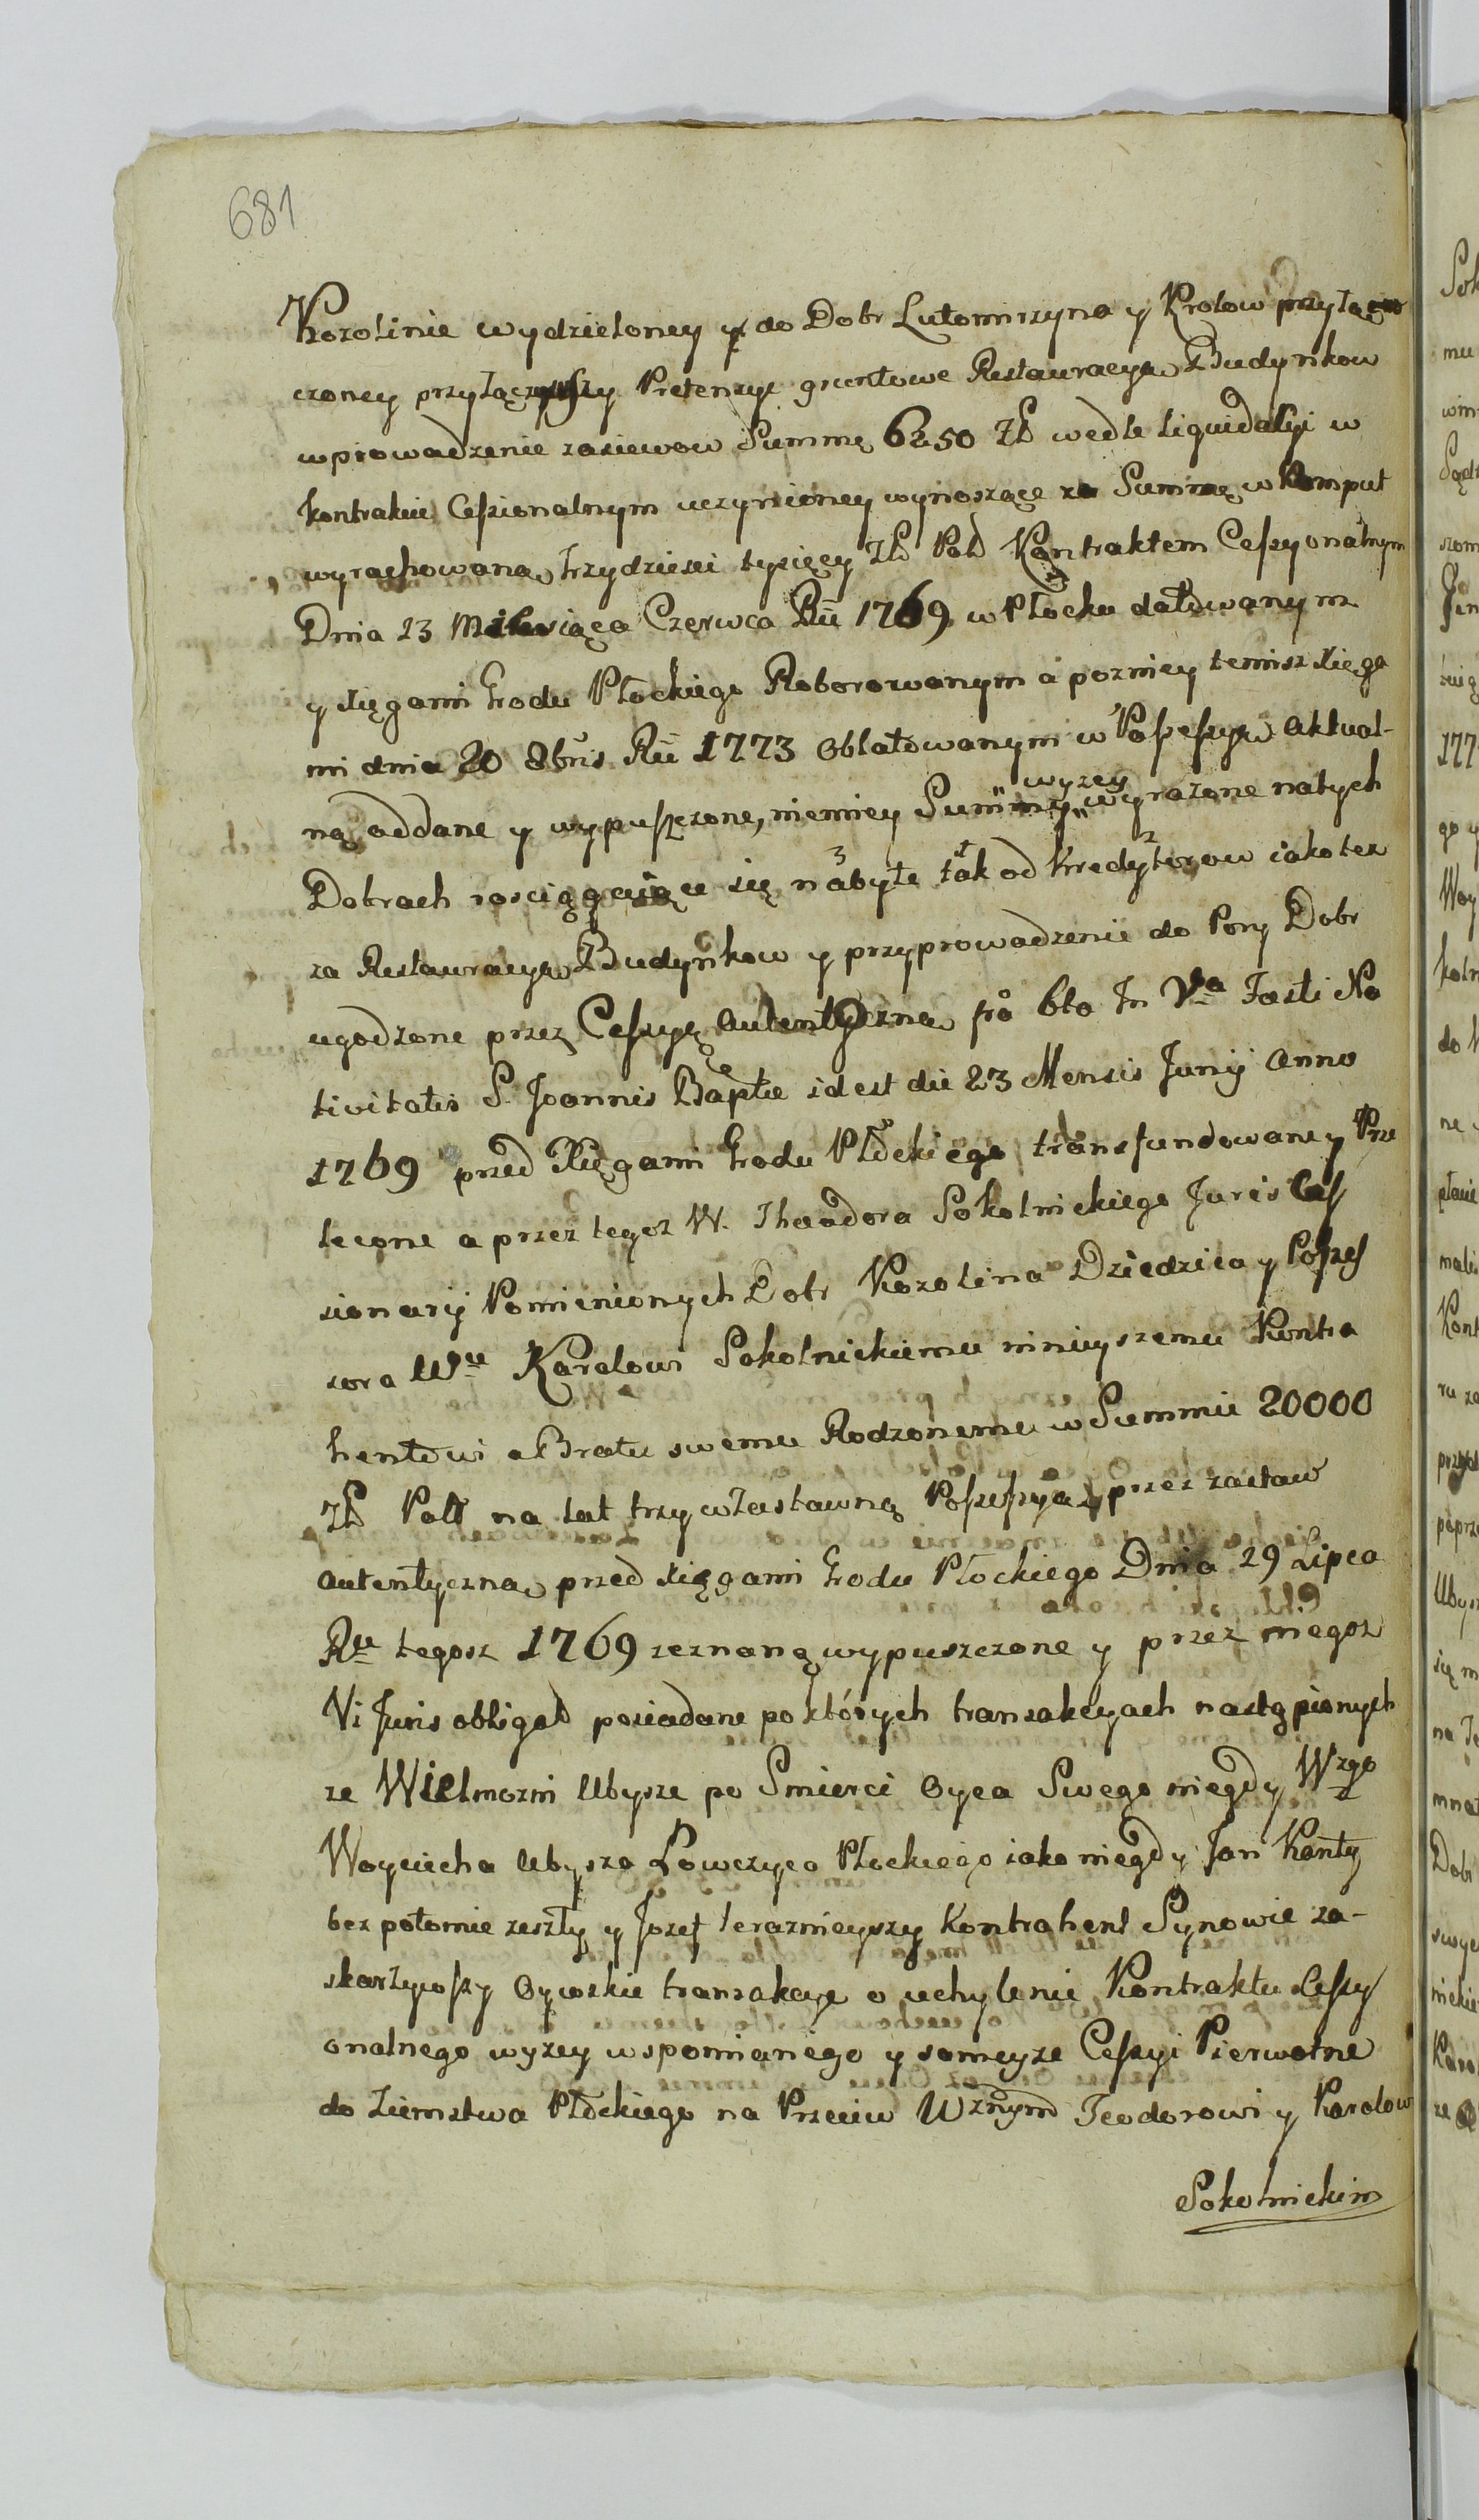 681
Kozolinie wydzieloney y do Dobr Lutomirzyna y Krolow przyłą
czoney przyłączywszy Pretensye gruntowe Restauracyą Budynkow
wprowadzenie zasiewow Summę 6250 Zł wedle liquidacyi w
kontrakcie Cessionalnym uczynioney wynoszące za Summę w Komput
wyrachowaną trzydziesci tysięcy Zł Pol Kontraktem Cessyonalnym
Dnia 23 Miesiąca Czerwca Ru 1769 w Płocku datowanym
y xięgami Grodu Płockiego Roborowanym a pozniey temisz xięga
mi dnia 20 8bris Ru 1773 oblatowanym w Possessyą aktual-
ną oddane y wypuszczone, niemniey Summy wyzey wyrazone natych
Dobrach rosciągaiące się nabyte tak od Kredytorow iako tez
za Restauracyą Budynkow y przyprowadzenie do Pory Dobr
ugodzone przez Cessyę autentyczną fro 6to In Vta Festi Na
tivitatis S. Joannis Baptæ id est die 23 Mensis Junij Anno
1769 przed Xięgami Grodu Płockiego transfundowane y Prze
lecone a przez tegoz W. Theodora Sokolnickiego Juris Ces
sionarij Pomienionych Dobr Kozolina Dziedzica y Posses
sora Wu Karolowi Sokolnickiemu mnieyszemu Kontra
hentowi a Bratu swemu Rodzonemu w Summie 20000
Zł Poll na lat trzy w Zastawną Possessyą przez zastaw
autentyczną przed xięgami Grodu Płockiego Dnia 29 Lipca
Ru tegosz 1769 zeznaną wypuszczone y przez niegosz
Vi Juris obligat posiadane po których transakcyach nastąpionych
ze Wielmozni Ubysze po Smierci Oyca Swego niegdy Wzgo
Woyciecha Ubysza Łowczyca Płockiego iako niegdy Jan Kanty
bez potomie zeszły y Jozef terazmieyszy Kontrahent Synowie za-
skarzywszy Oycoskie transakcye o uchylenie Kontraktu Cessy
onalnego wyzey wspomianego y sameyze Cessyi Pierwotne
do Ziemstwa Płockiego na Przeciw Wznym Teodorowi y Karolow
Sokolnickim